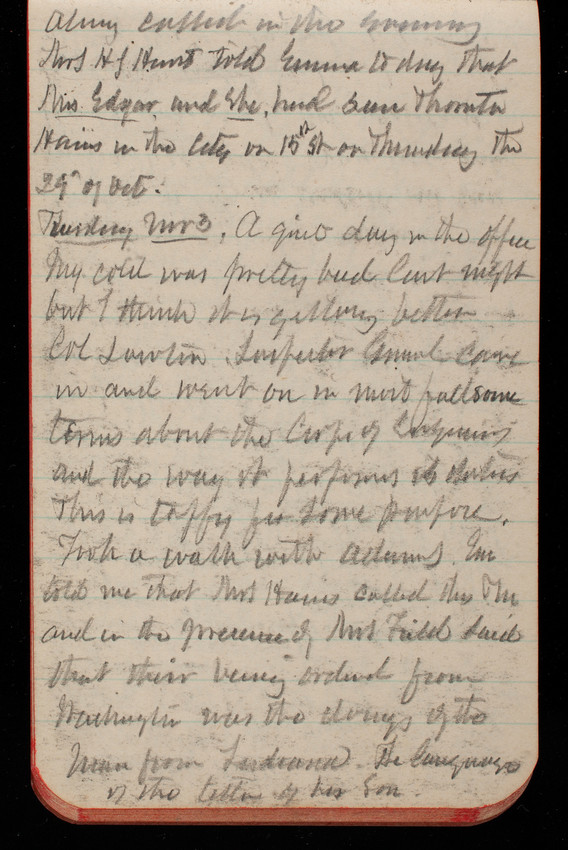 called in the evening
Mrs H J Hunt told Emma to day that
Mrs. Edgar and She had seen Thornton
Hains in the City on 15th St on Thursday the
29" of Oct.
Tuesday Nov 3. A quiet day in the office
My cold was pretty bad last night
but I think it is getting better
Col Lawton Inspector General came
in and went on in most fullsome
terms about the Corps of Engineers
and the way it performs its duties
This is taffy for some purpose.
Took a walk with Adams. Em
told me that Mrs Hains called this
and in the presence of Mrs Field said
that their being ordered from
Washington was the doings of the
man from Indiana. The language
of the letter of her Son.